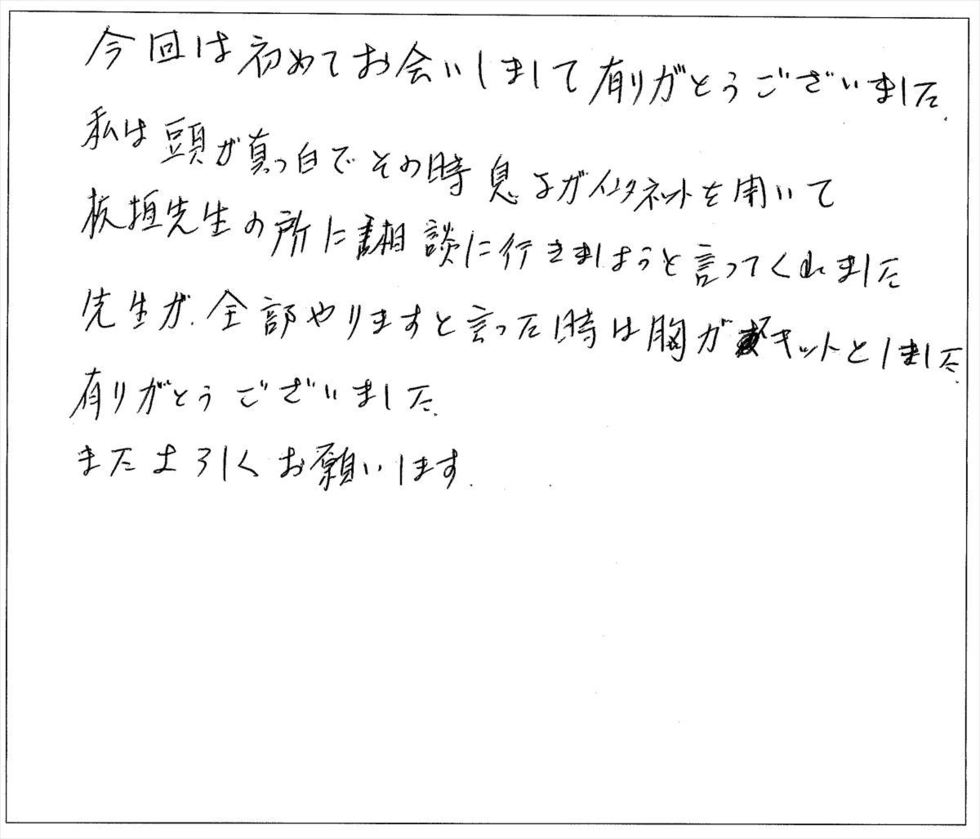 今回は初めてお会いしまして有りがとうございました.
私は頭が真っ白でその時息子がインタネットを用いて
板垣先生の所に相談に行きましょうと言ってくれました
先生が.全部やりますと言った時は胸がキットとしました.
有りがとうございました.
またよろしくお願いします.